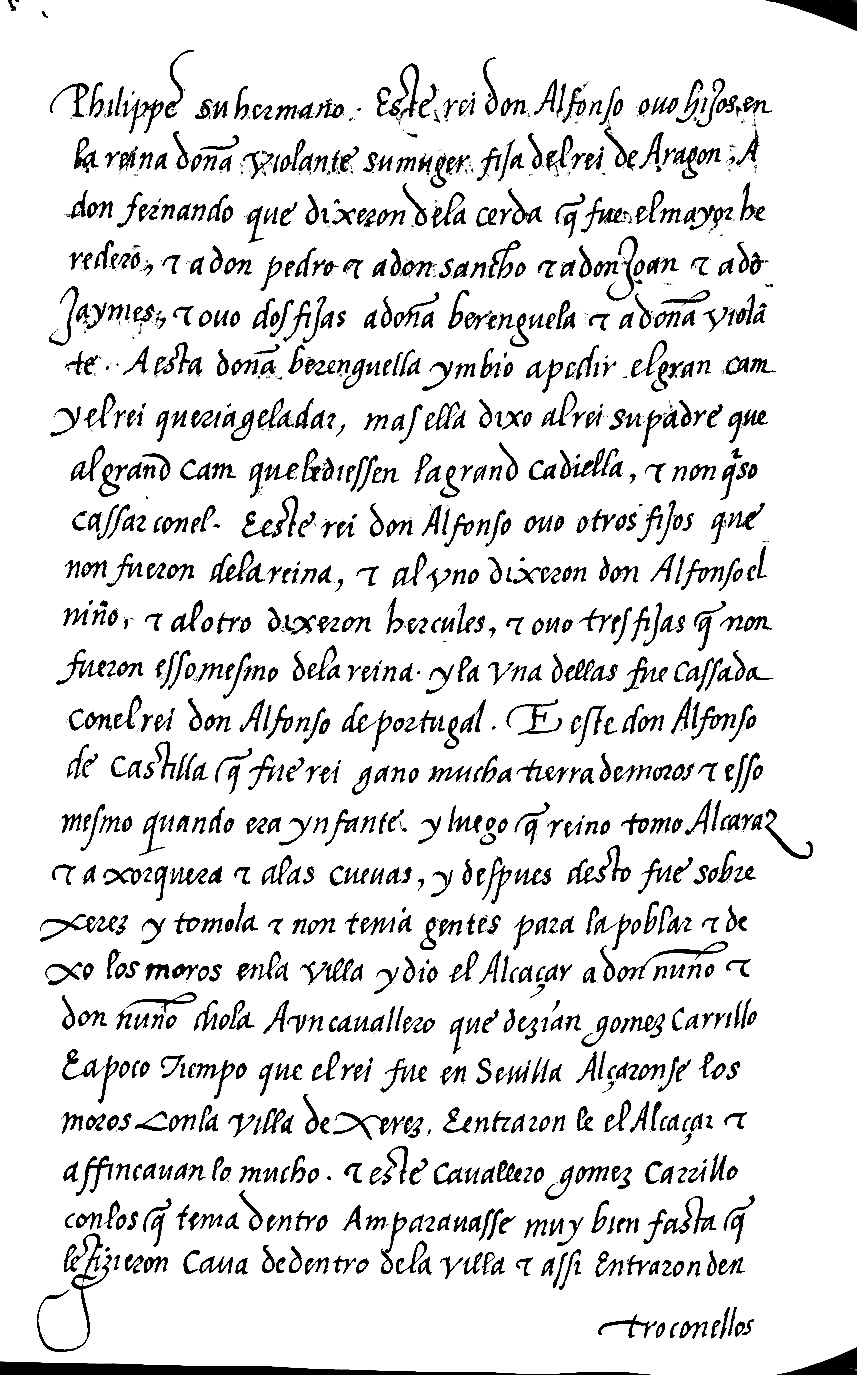 Philippe su hermano. Este rei don Alfonso ouo hijos en
la reina doña violante su muger fija del rei de Aragon, A
don fernando que dixeron dela cerda q̃ fue el mayor he
redero, τ a don pedro τ a don sancho τ a don Joan τ a dõ
Jaymes, τ ouo dos fijas a doña berenguela τ a doña violã
te. A esta doña berenguella ymbio a pedir el gran cam
y el rei queria gela dar, mas ella dixo al rei su padre que
al grand cam que le diessen la grand cadiella, τ non q̃so
cassar conel. E este rei don Alfonso ouo otros fijos que
non fueron dela reina, τ al vno dixeron don Alfonso el
niño, τ al otro dixeron hercules, τ ouo tres fijas q̃ non
fueron esso mesmo dela reina. y la vna dellas fue cassada
conel rei don Alfonso de portugal. E este don Alfonso
de Castilla q̃ fue rei gano mucha tierra de moros τ esso
mesmo quando era ynfante. y luego q̃ reino tomo Alcaraz
τ a xorquera τ alas cueuas, y despues desto fue sobre
xerez y tomola τ non tenia gentes para la poblar τ de
xo los moros enla villa y dio el Alcaçar a don nuño τ
don nuño diola A vn cauallero que dezian gomez Carrillo
E a poco Tiempo que el rei fue en Seuilla Alçaronse los
moros Conla villa de Xerez. E entraron le el Alcaçar τ
affincauan lo mucho. τ este Cauallero gomez Carrillo
con los q̃ tenia dentro Amparauasse muy bien fasta q̃
le fizieron Caua de dentro dela villa τ assi Entraron den
tro conellos